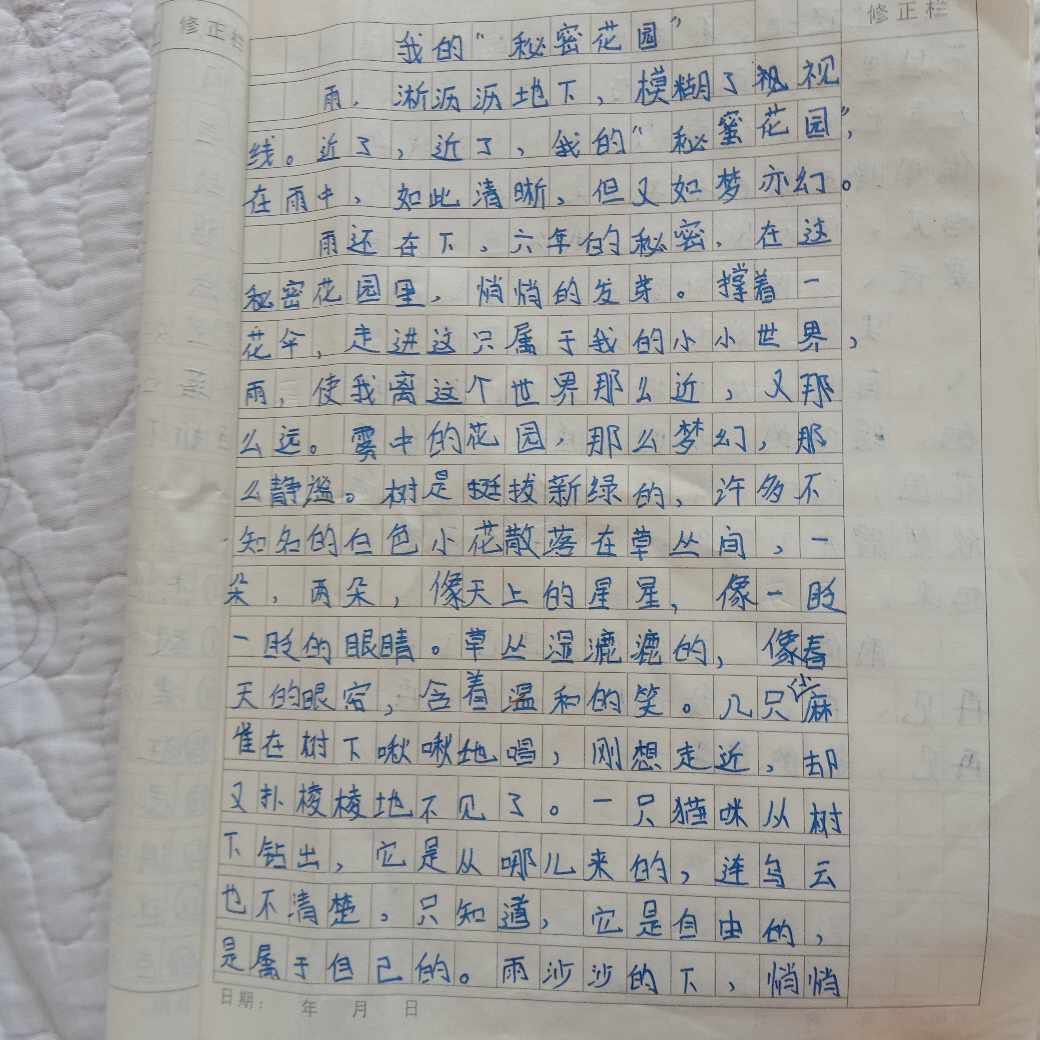 修正栏
修正栏
我的“秘密花园”
雨，淅沥沥地下，模糊了视
线。近了，近了，我的“秘蜜花园”，
在雨中，如此清晰，但又如梦亦幻。
雨还在下，六年的秘密，在这
秘密花园里，悄悄的发芽。撑着一
花伞，走进这只属于我的小小世界，
雨，使我离这个世界那么近，又那
么远。雾中的花园，那么梦幻，那
么静谧。树是挺拔新绿的，许多不
知名的白色小花散落在草丛间，一
朵，两朵，像天上的星星，像一眨
一眨的眼睛。草丛湿漉漉的，像春
天的眼容，含着温和的笑。几只小麻
雀在树下啾啾地唱，刚想走近，却
又扑棱棱地不见了。一只猫咪从树
下钻出，它是从哪儿来的，连乌云
也不清楚，只知道，它是自由的，
是属于自己的。雨沙沙的下，悄悄
日期： 年 月 日